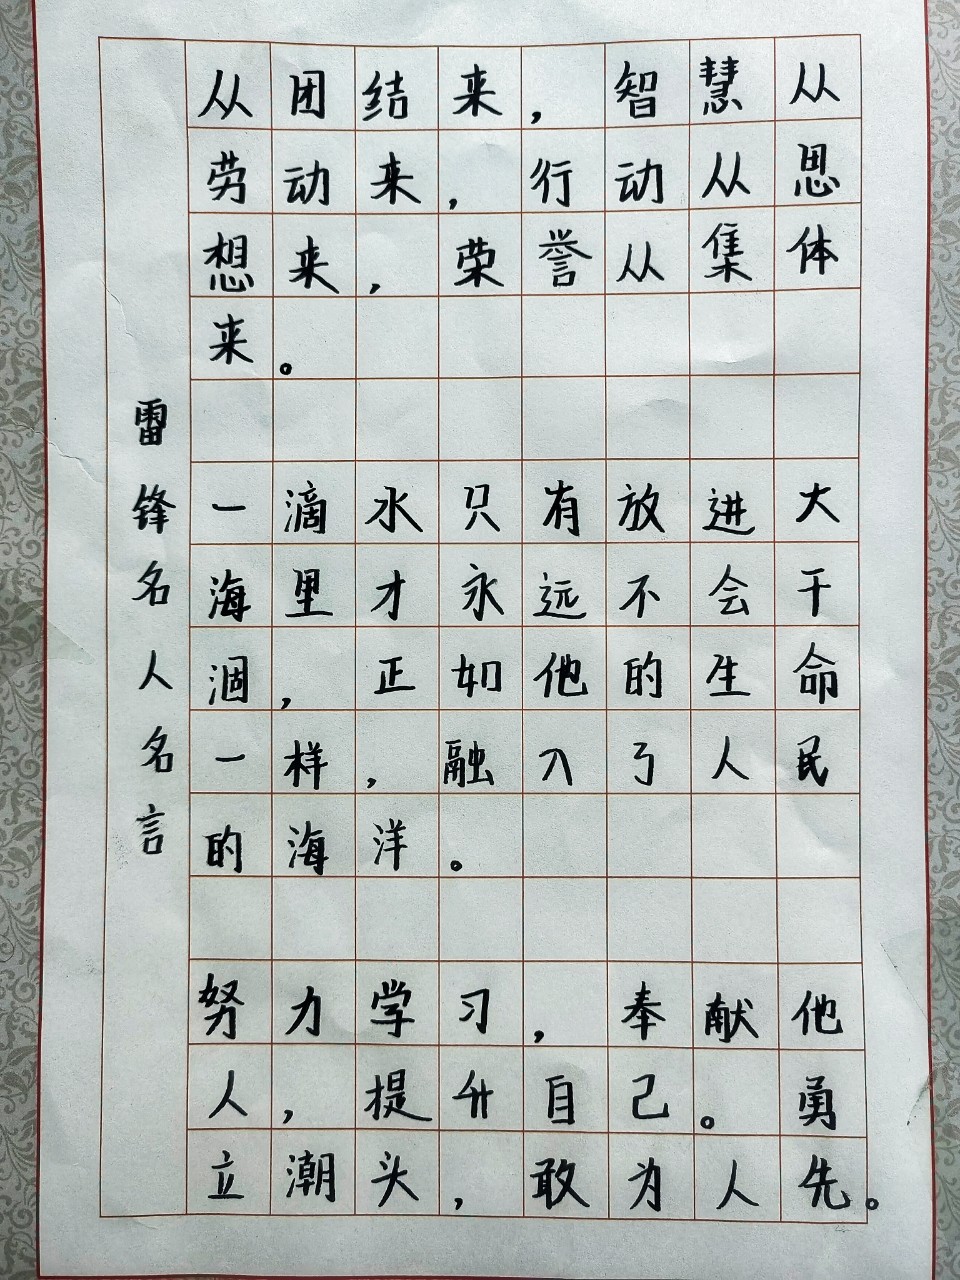 雷锋名人名言
从团结来，智慧从
劳动来，行动从思
想来，荣誉从集体
来。
一滴水只有放进大
海里才永远不会干
涸，正如他的生命
一样，融入了人民
的海洋。
努力学习，奉献他
人，提升自己。勇
立潮头，敢为人先。